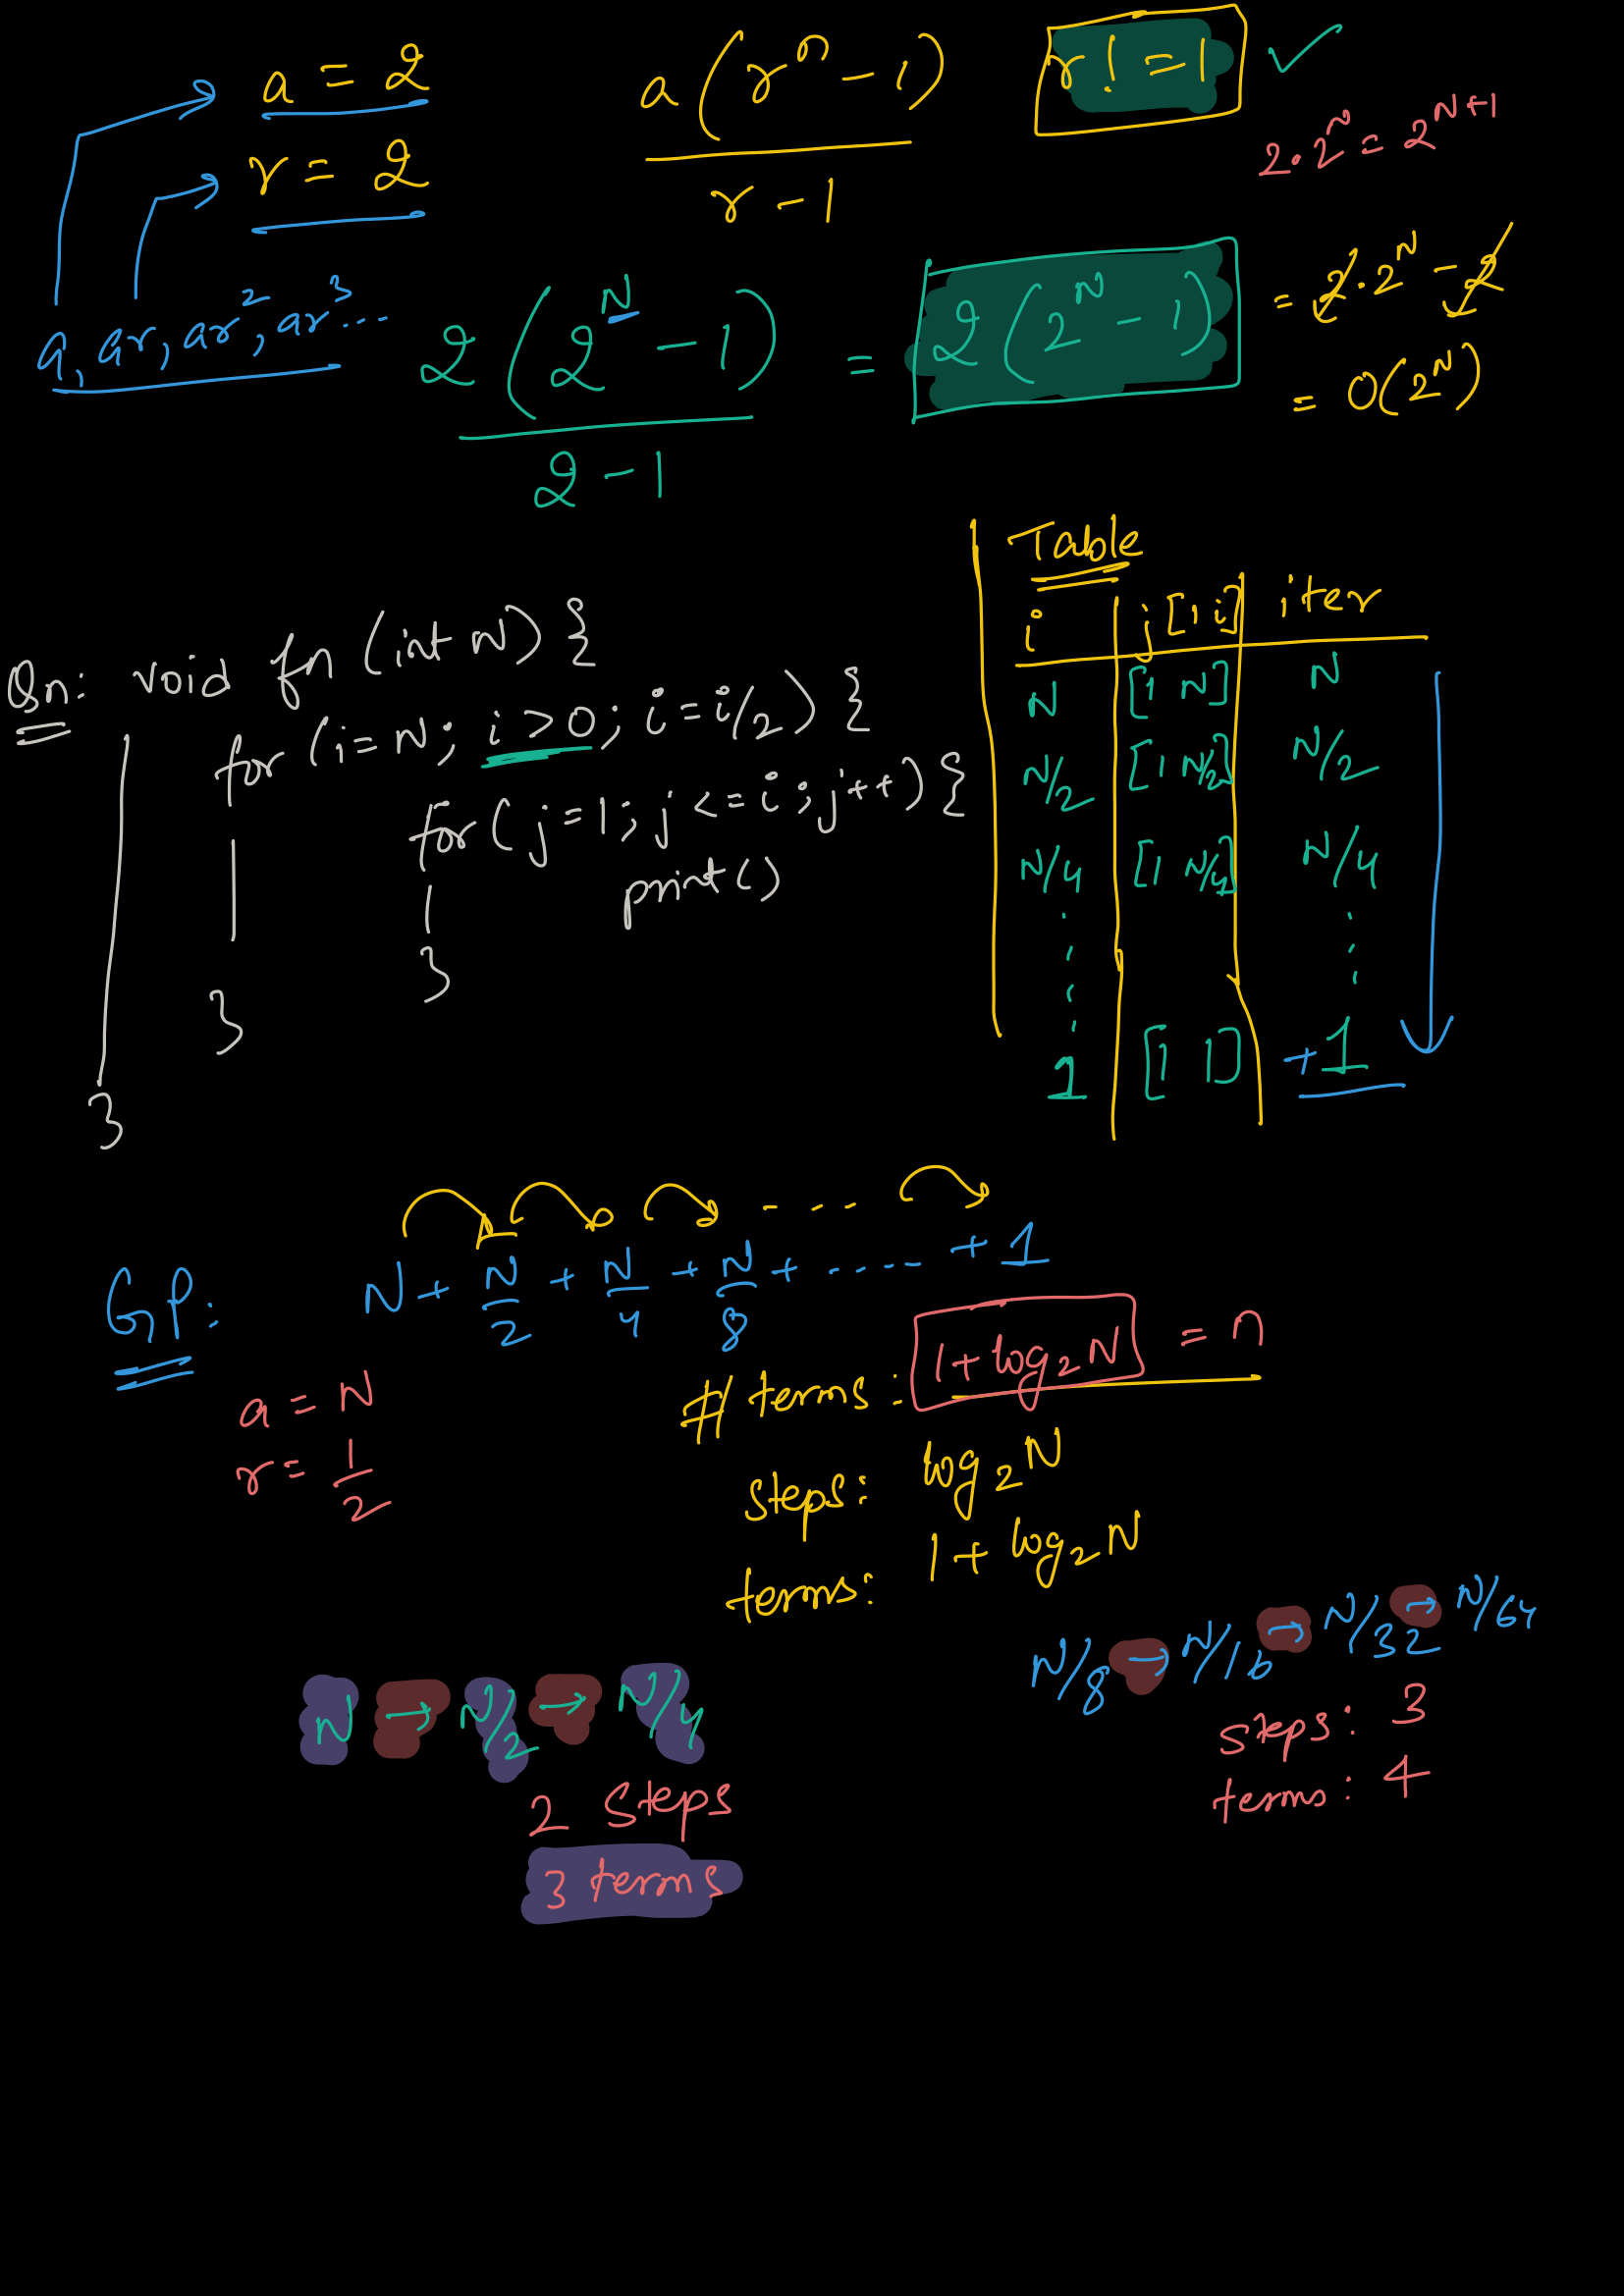 a = 2
r = 2
a, ar, ar², ar³ ...
a(rⁿ - 1) / r - 1
r! = 1 ✓
2·2ᴺ = 2ᴺ⁺¹
2(2ᴺ - 1) / 2 - 1 = 2(2ᴺ - 1) = 2·2ᴺ - 2
= O(2ᴺ)
Qn: void fn (int N) {
for (i = N; i > 0; i = i/2) {
for (j = 1; j <= i; j++) {
print()
}
}
}
Table
i | j [1 i] | iter
N | [1 N] | N
N/2 | [1 N/2] | N/2
N/4 | [1 N/4] | N/4
1 | [1 1] | +1
GP: N + N/2 + N/4 + N/8 + ..... + 1
a = N
r = 1/2
# terms : 1 + log₂N = n
steps: log₂N
terms: 1 + log₂N
N → N/2 → N/4
2 steps
3 terms
N/8 → N/16 → N/32 → N/64
steps: 3
terms: 4